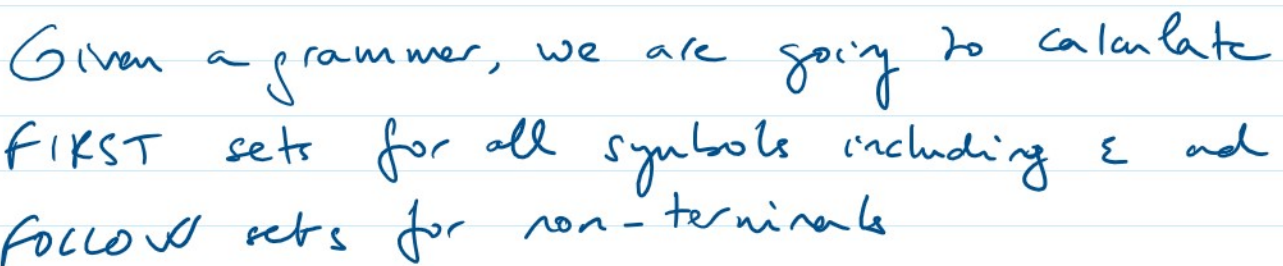 Given a grammer, we are going to calculate
FIRST sets for all symbols including ε and
FOLLOW sets for non-terminals